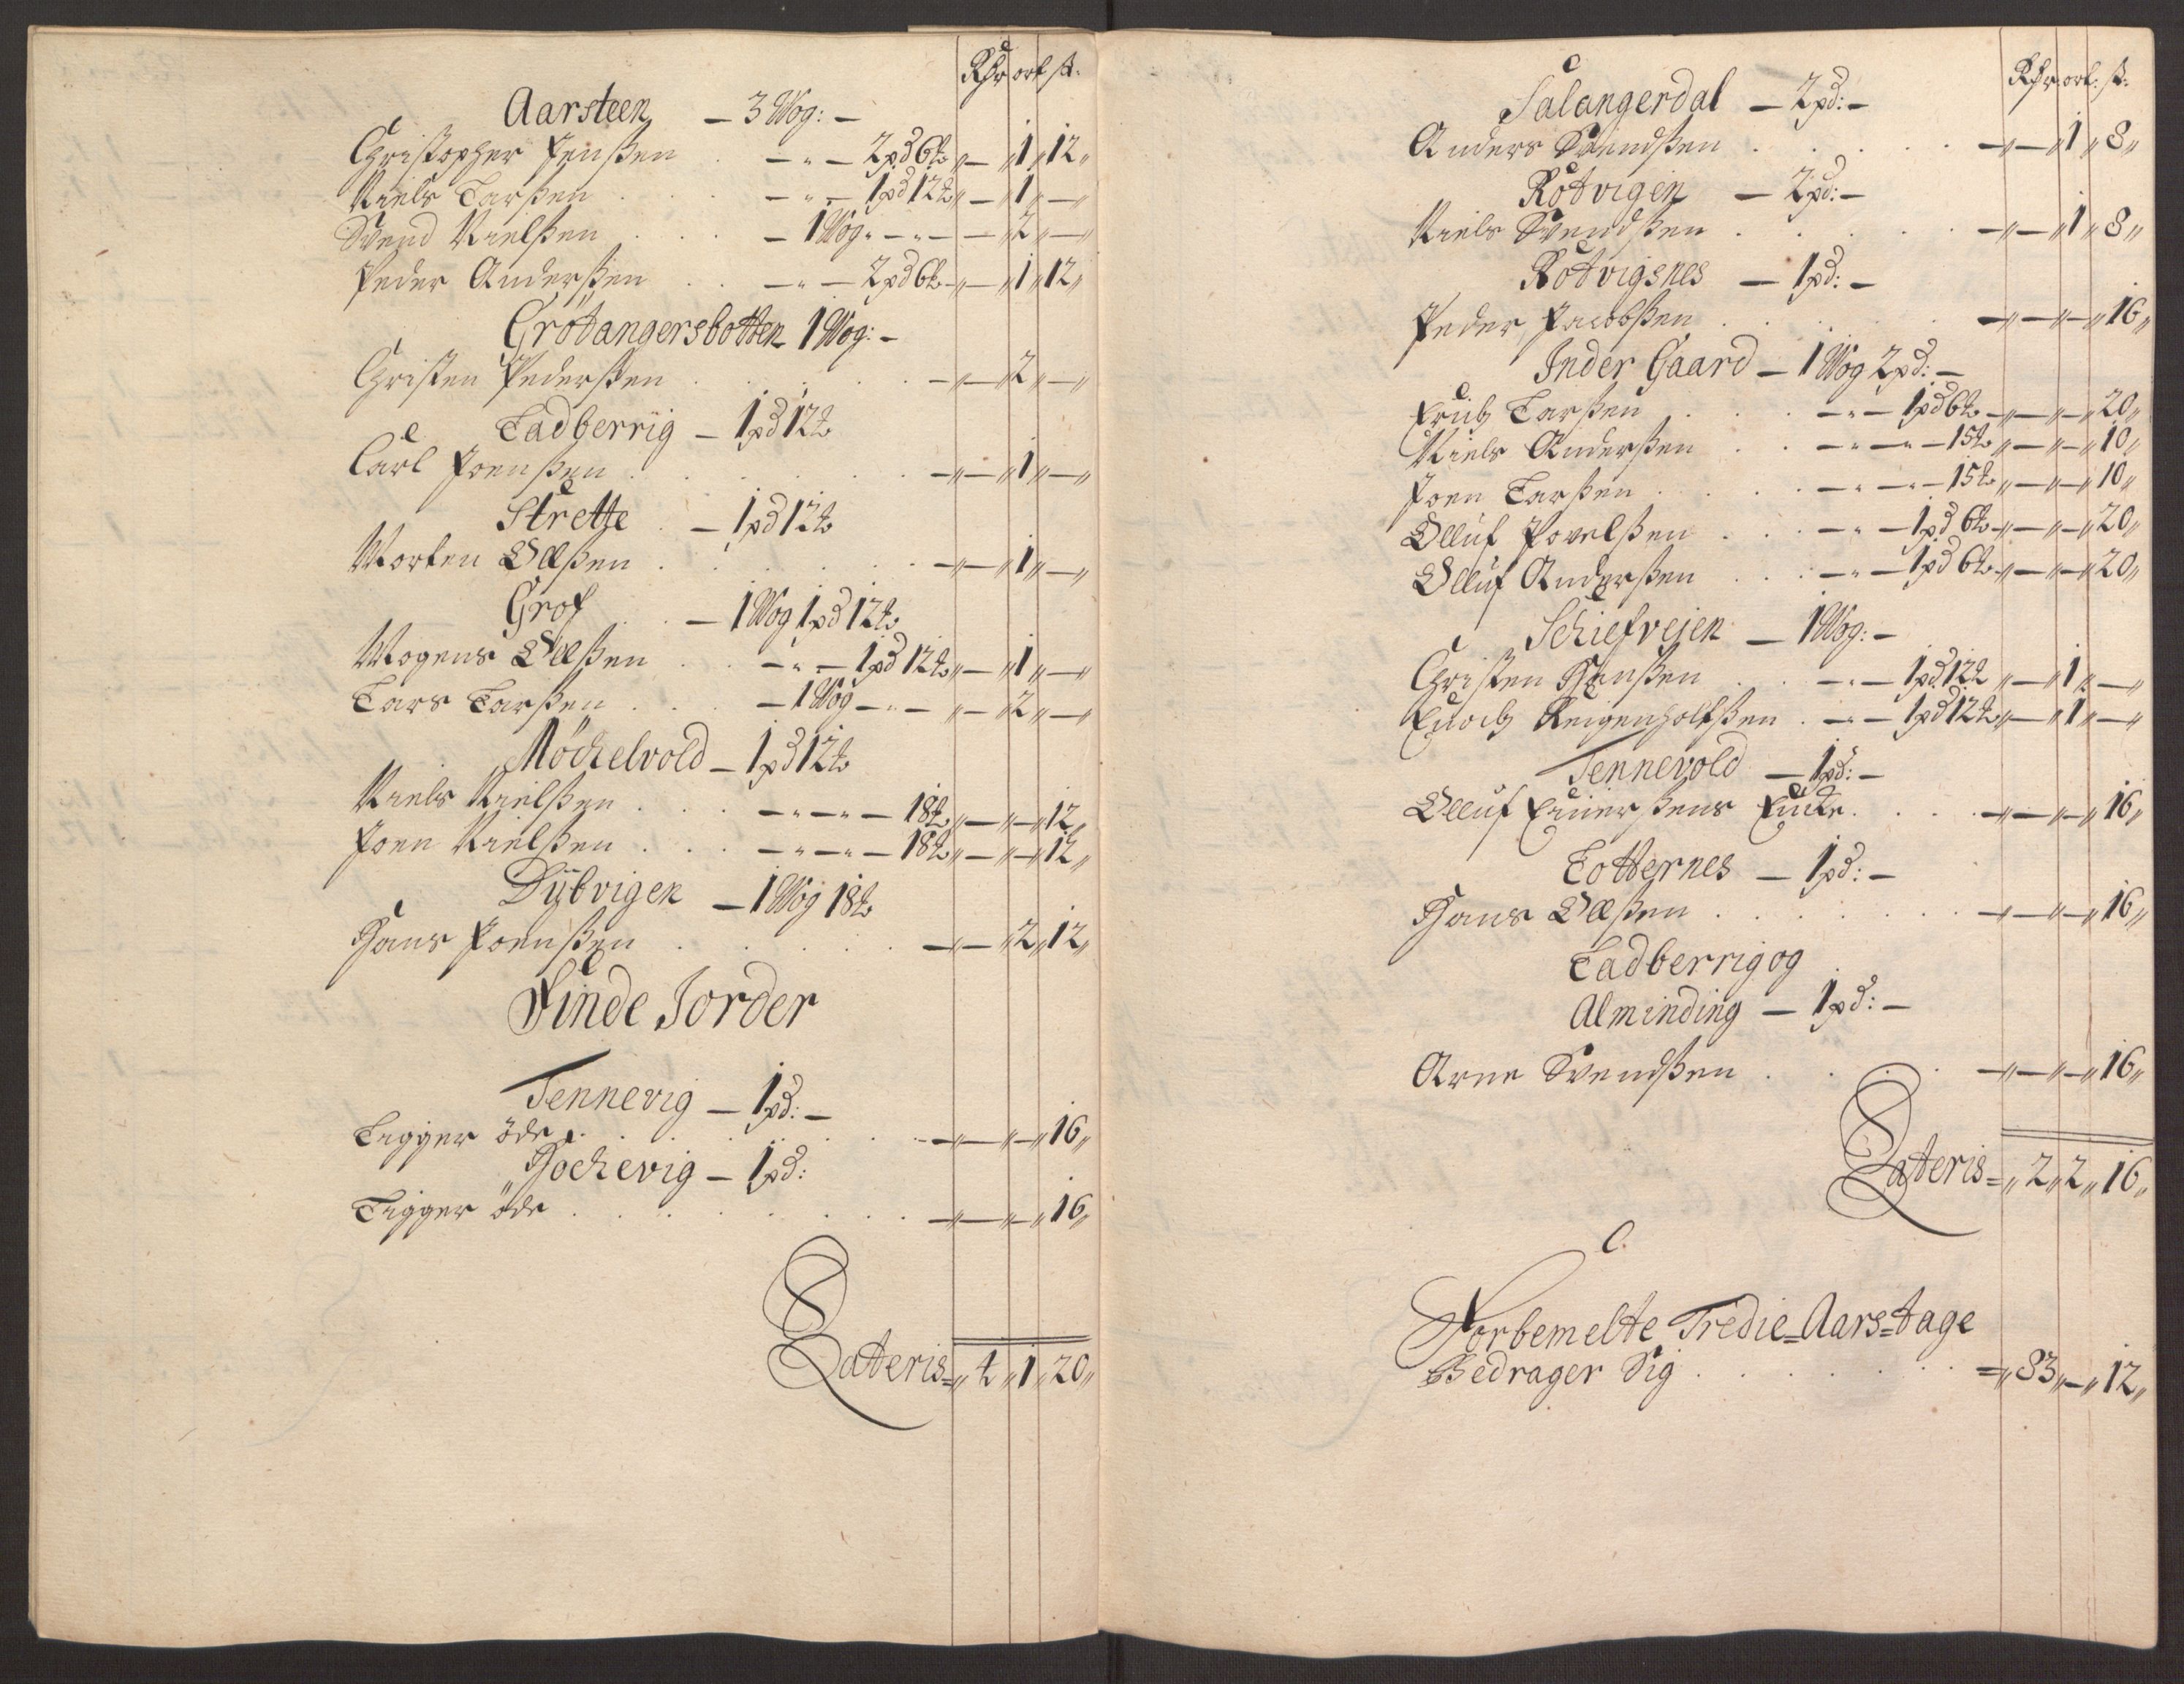 Rdr ort ß.
Aarsteen — 3 Wog: —
Christopher Jenßen . — „ — 2 pd 6 ℔ „ — „ 1 „ 12 „
Niels Larßen . . . — „ — 1 pd 12 ℔ „ — „ 1 „ — „
Svend Nielßen . . . — 1 Wog „ — „ — — „ 2 „ — „
Peder Anderßen . . — „ — 2 pd 6 ℔ „ — „ 1 „ 12 „
Grötangersbotten 1 Wog: —
Christen Pederßen . . . . . — „ — „ 2 „ — „
Ladberrig — 1 pd 12 ℔
Carl Joenßen . . . . . . — „ — „ 1 „ — „
Strette . — 1 pd 12 ℔
Morten Olßen . . . . . . — „ — „ 1 „ — „
Grof . . — 1 Wog 1 pd 12 ℔
Mogens Olßen . . — „ — 1 pd 12 ℔ „ — „ 1 „ — „
Lars Larßen . . . — 1 Wog — „ — „ — „ 2 „ — „
Möckelvold — 1 pd 12 ℔
Niels Nielßen . . . — „ — „ — 18 ℔ „ — „ — „ 12 „
Joen Nielßen . . . — „ — „ — 18 ℔ „ — „ — „ 12 „
Dÿbvigen — 1 Wog 18 ℔
Hans Joenßen . . . . . — „ — „ 2 „ 12 „
Finde Jorder
Tennevig — 1 pd: —
Ligger öde . . . . . . . — „ — „ — „ 16 „
Hochevig — 1 pd:
Ligger öde . . . . . . . — „ — „ — „ 16 „
Lateris = „ 4 „ 1 „ 20 „
Rdr. ort. ß.
Salangerdal — 2 pd: —
Anders Svendßen . . . . . — „ — „ 1 „ 8 „
Rötvigen — 2 pd: —
Niels Svendßen . . . . . — „ — „ 1 „ 8 „
Rotvigsnes — 1 pd: —
Peder Jacobßen . . . . . — „ — „ — „ 16 „
Inder Gaard — 1 Wog 2 pd: —
Erich Larßen . . . — „ — 1 pd 6 ℔ — „ — „ — „ 20 „
Niels Anderßen . . — „ — „ — 15 ℔ „ — „ — „ 10 „
Joen Larßen . . . . — „ — „ — 15 ℔ „ — „ — „ 10 „
Olluf Povelßen . . . — „ — 1 pd 6 ℔ — „ — „ — „ 20 „
Olluf Anderßen . . . — „ — 1 pd 6 ℔ — „ — „ — „ 20 „
Schiefveien — 1 Wog: —
Christen Hanßen . . — „ — 1 pd. 12 ℔ „ — „ 1 „ — „
Enoch Reigenholfßen . — „ — 1 pd 12 ℔ „ — „ 1 „ — „
Tennevold — 1 pd: —
Olluf Einerßens Encke . . . . — „ — „ — „ 16 „
Lotternes — 1 pd: —
Hans Olßen . . . . . . . — „ — „ — „ 16 „
Ladberrig og
Alminding — 1 pd: —
Arne Svendßen . . . . — „ — „ — „ 16 „
Lateris = „ 2 „ 2 „ 16 „
Forbemelte Tredie=Aars=tage
Bedrager Sig . . . . . . = „ 83 „ — „ 12 „